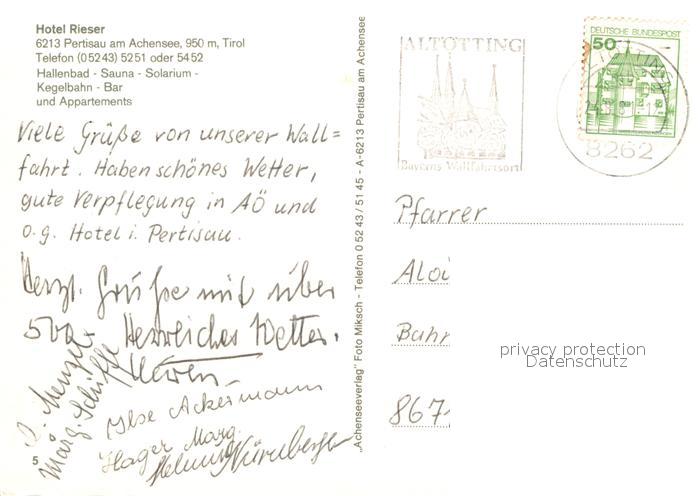 Hotel Rieser
6213 Pertisau am Achensee, 950 m, Tirol
Telefon (05243) 5251 oder 5452
Hallenbad - Sauna - Solarium -
Kegelbahn - Bar
und Appartements
Viele Grüße von unserer Wall=
fahrt. Haben schönes Wetter,
gute Verpflegung in AÖ und
o.g. Hotel i. Pertisau.
Herzl. Grüße mit über
Herrliches Wetter.
Marg. Schiffe
Ilse Ackermann
Hager Marg.
Helmut Nürnberger
5
„Achenseeverlag" Foto Miksch - Telefon 0 52 43 / 51 45 - A-6213 Pertisau am Achensee
ALTÖTTING
Bayerns Wallfahrtsort
DEUTSCHE BUNDESPOST
50
8262
Pfarrer
Aloi
Bahr
867
privacy protection
Datenschutz